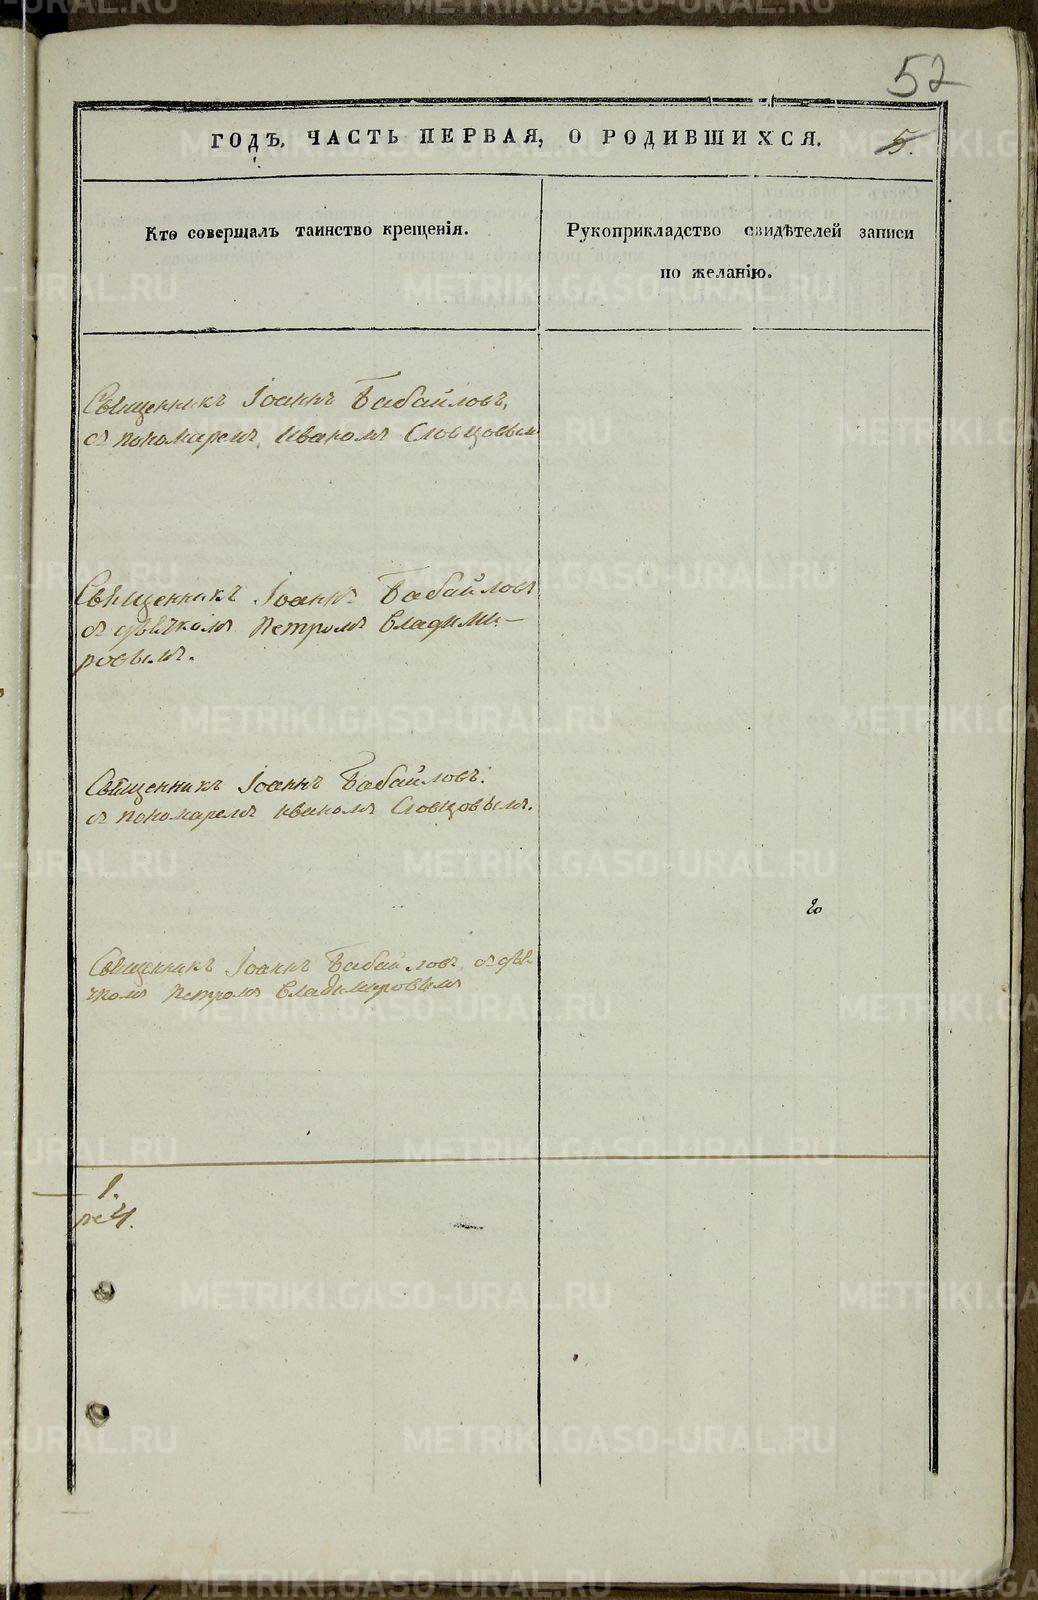 52
ГОДЪ, ЧАСТЬ ПЕРВАЯ, О РОДИВШИХСЯ.
5.
Кто совершалъ таинство крещенія.
Рукоприкладство свидѣтелей записи
по желанію.
Священникъ Іоаннъ Бабайловъ,
съ пономаремъ Иваномъ Словцовым
Священникъ Іоаннъ Бабайловъ
съ дьячкомъ Петромъ Владими-
ровымъ.
Священникъ Іоаннъ Бабайловъ.
съ пономаремъ Иваномъ Словцовымъ.
Священникъ Іоаннъ Бабайловъ съ дья-
чкомъ Петромъ Владимировымъ
1.
4.
METRIKI.GASO-URAL.RU